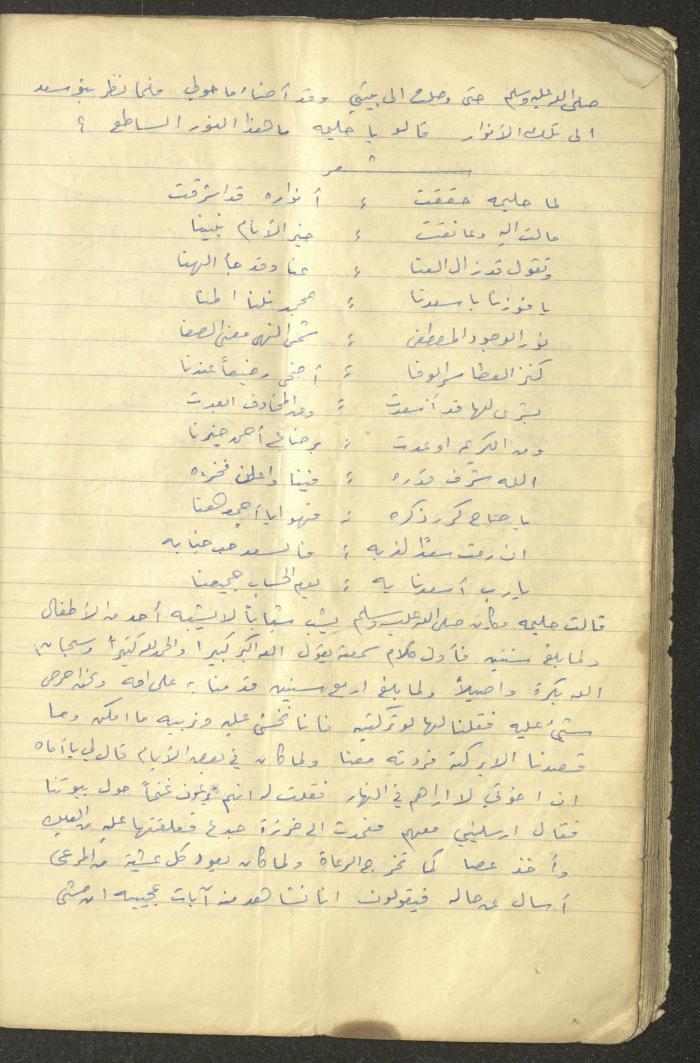 صلى الله عليه وسلم حتى وصلت الى بيتي وقد أضاء ما حولي فلما نظر بنو سعد
الى تلك الأنوار قالو يا حليمه ما هذا النور الساطع ؟
شعر
لما حليمه حققت ؛ أنواره قد اشرقت
مالت اليه وعانقت ؛ خير الأنام نبينا
وتقول قد زال العنا ؛ عنا وقد جاء الهنا
يا فوزنا يا سعدنا ؛ محمد نلنا المنا
نور الوجود المصطفى ؛ شمس النهى معنى الصفا
كنز العطا سر الوفا ؛ أضحى رضيعاً عندنا
بشرى لها قد أسعدت ؛ ومن المخاوف ابعدت
ومن الكريم اوعدت ؛ برضاع أحمد خيرنا
الله شرف قدره ؛ فينا واعلن فخره
يا صاح كرر ذكره ؛ فهو
ان رمت سعدًا لذ به ؛ فالسعد حب جنابه
يا رب أسعدنا به ؛ يوم الحساب جميعنا
قالت حليمه وكان صلى الله عليه وسلم يشب شباباً لا يشبه أحد من الأطفال
ولما بلغ سنتين فأول كلام سمعته يقول الله اكبر كبيرا والحمد لله كثيرا وسبحان
الله بكرة واصيلاً ولما بلغ اربع سنين قدمنا به على امه ونحن احرص
شيء عليه فقلنا لها لو تركتيه فاننا نخشى عليه ونربيه ما امكن وما
قصدنا الا بركته فردته معنا ولما كان في بعض الأيام قال لي يا أماه
ان اخوتي لا اراهم في النهار فقلت له انهم يرعون غنماً حول بيوتنا
فقال ارسليني معهم فعمدت الى خرزة جزع فعلقتها عليه من العين
وأخذ عصا كما تخرج الرعاة ولما كان يعود كل عشية من المرعى
أسأل عن حاله فيقولون اننا نشاهد منه آيات عجيبه ان مشى